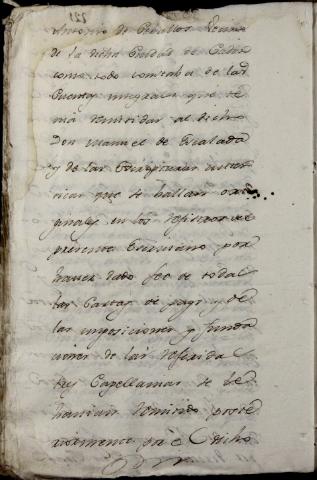 221
Antonio de Ceballos Vecino
de la dicha Ciudad de Cadiz
como todo constaba de las
Cuentas integrales que te
nia remitidas al dicho
Don Manuel de Escalada
y de las Escripturas authen
ticas que se hallan ori
ginales en los rexistros del
presente Escrivano por
haver dado fee de todas
las Cartas de pago y de
las imposiciones y funda
ciones de las referidas
tres Capellanias se le
havian remitido poste
riormente por el dicho